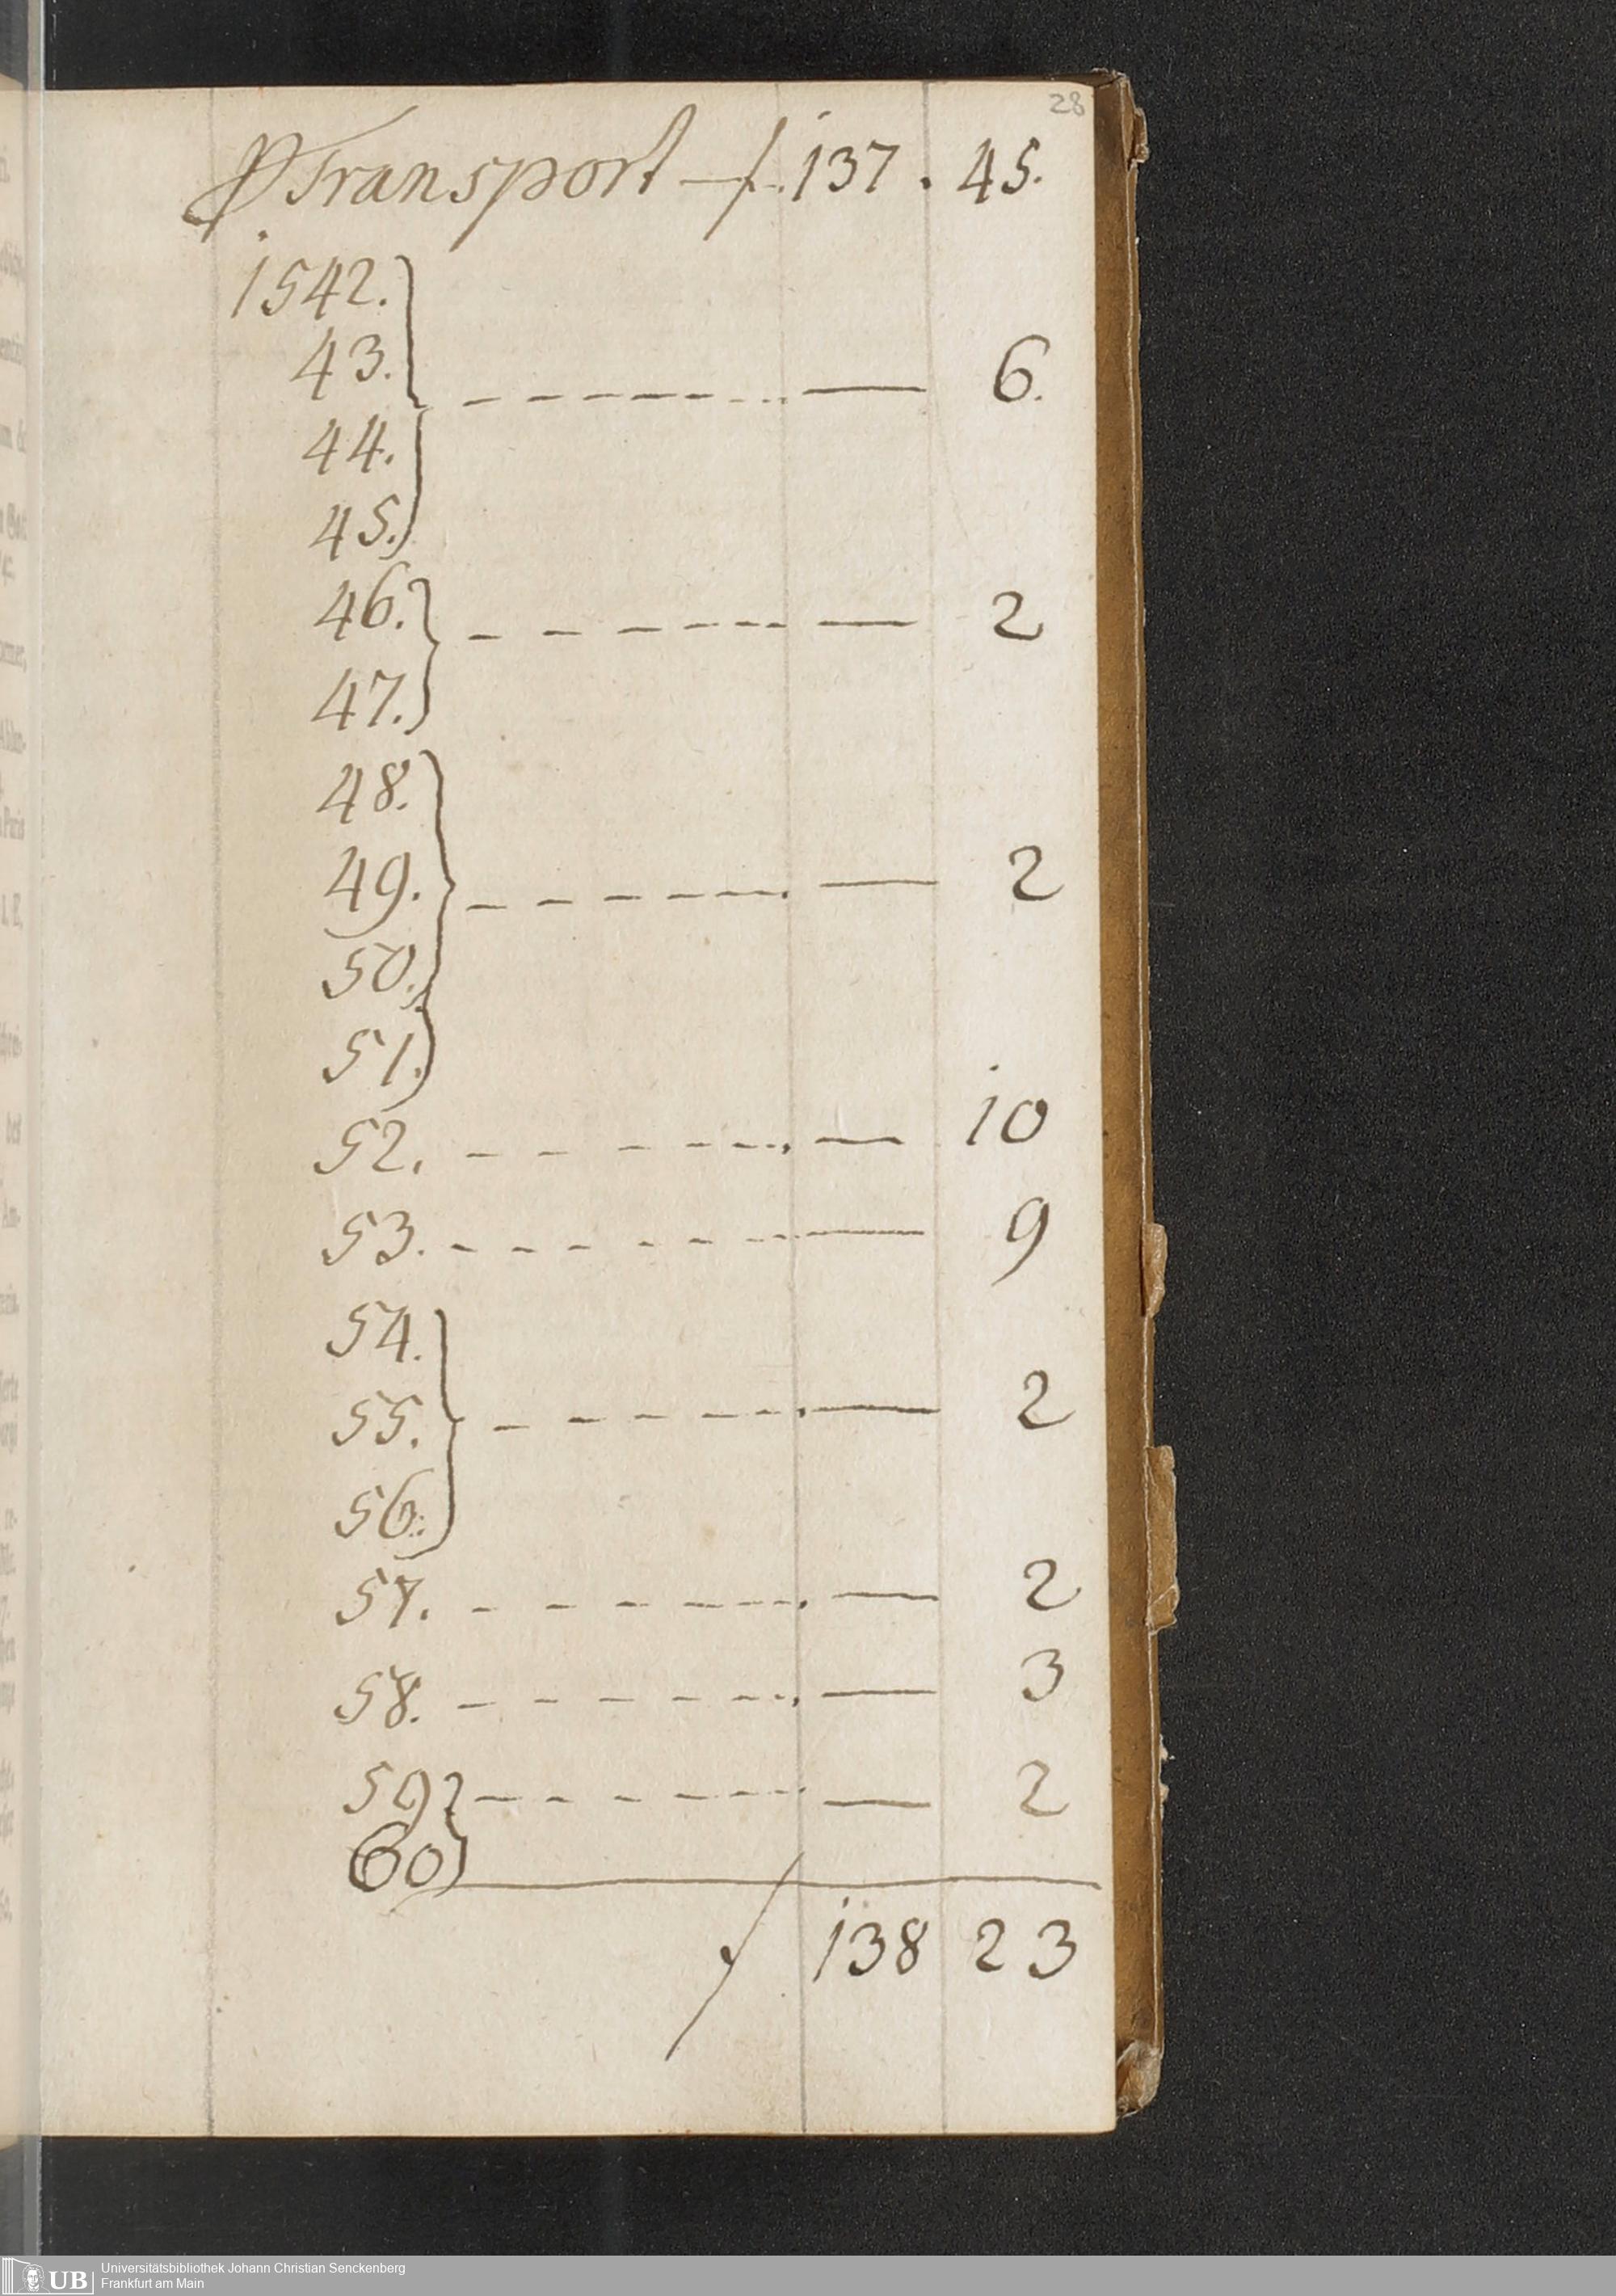 28
P Transport — f. 137. 45.
1542.
43. — 6.
44.
45.
46. — 2
47.
48.
49. — 2
50.
51.
52. — 10
53. — 9
54.
55. — 2
56.
57. — 2
58. — 3
59 — 2
60
f 138 23
UB
Universitätsbibliothek Johann Christian Senckenberg
Frankfurt am Main